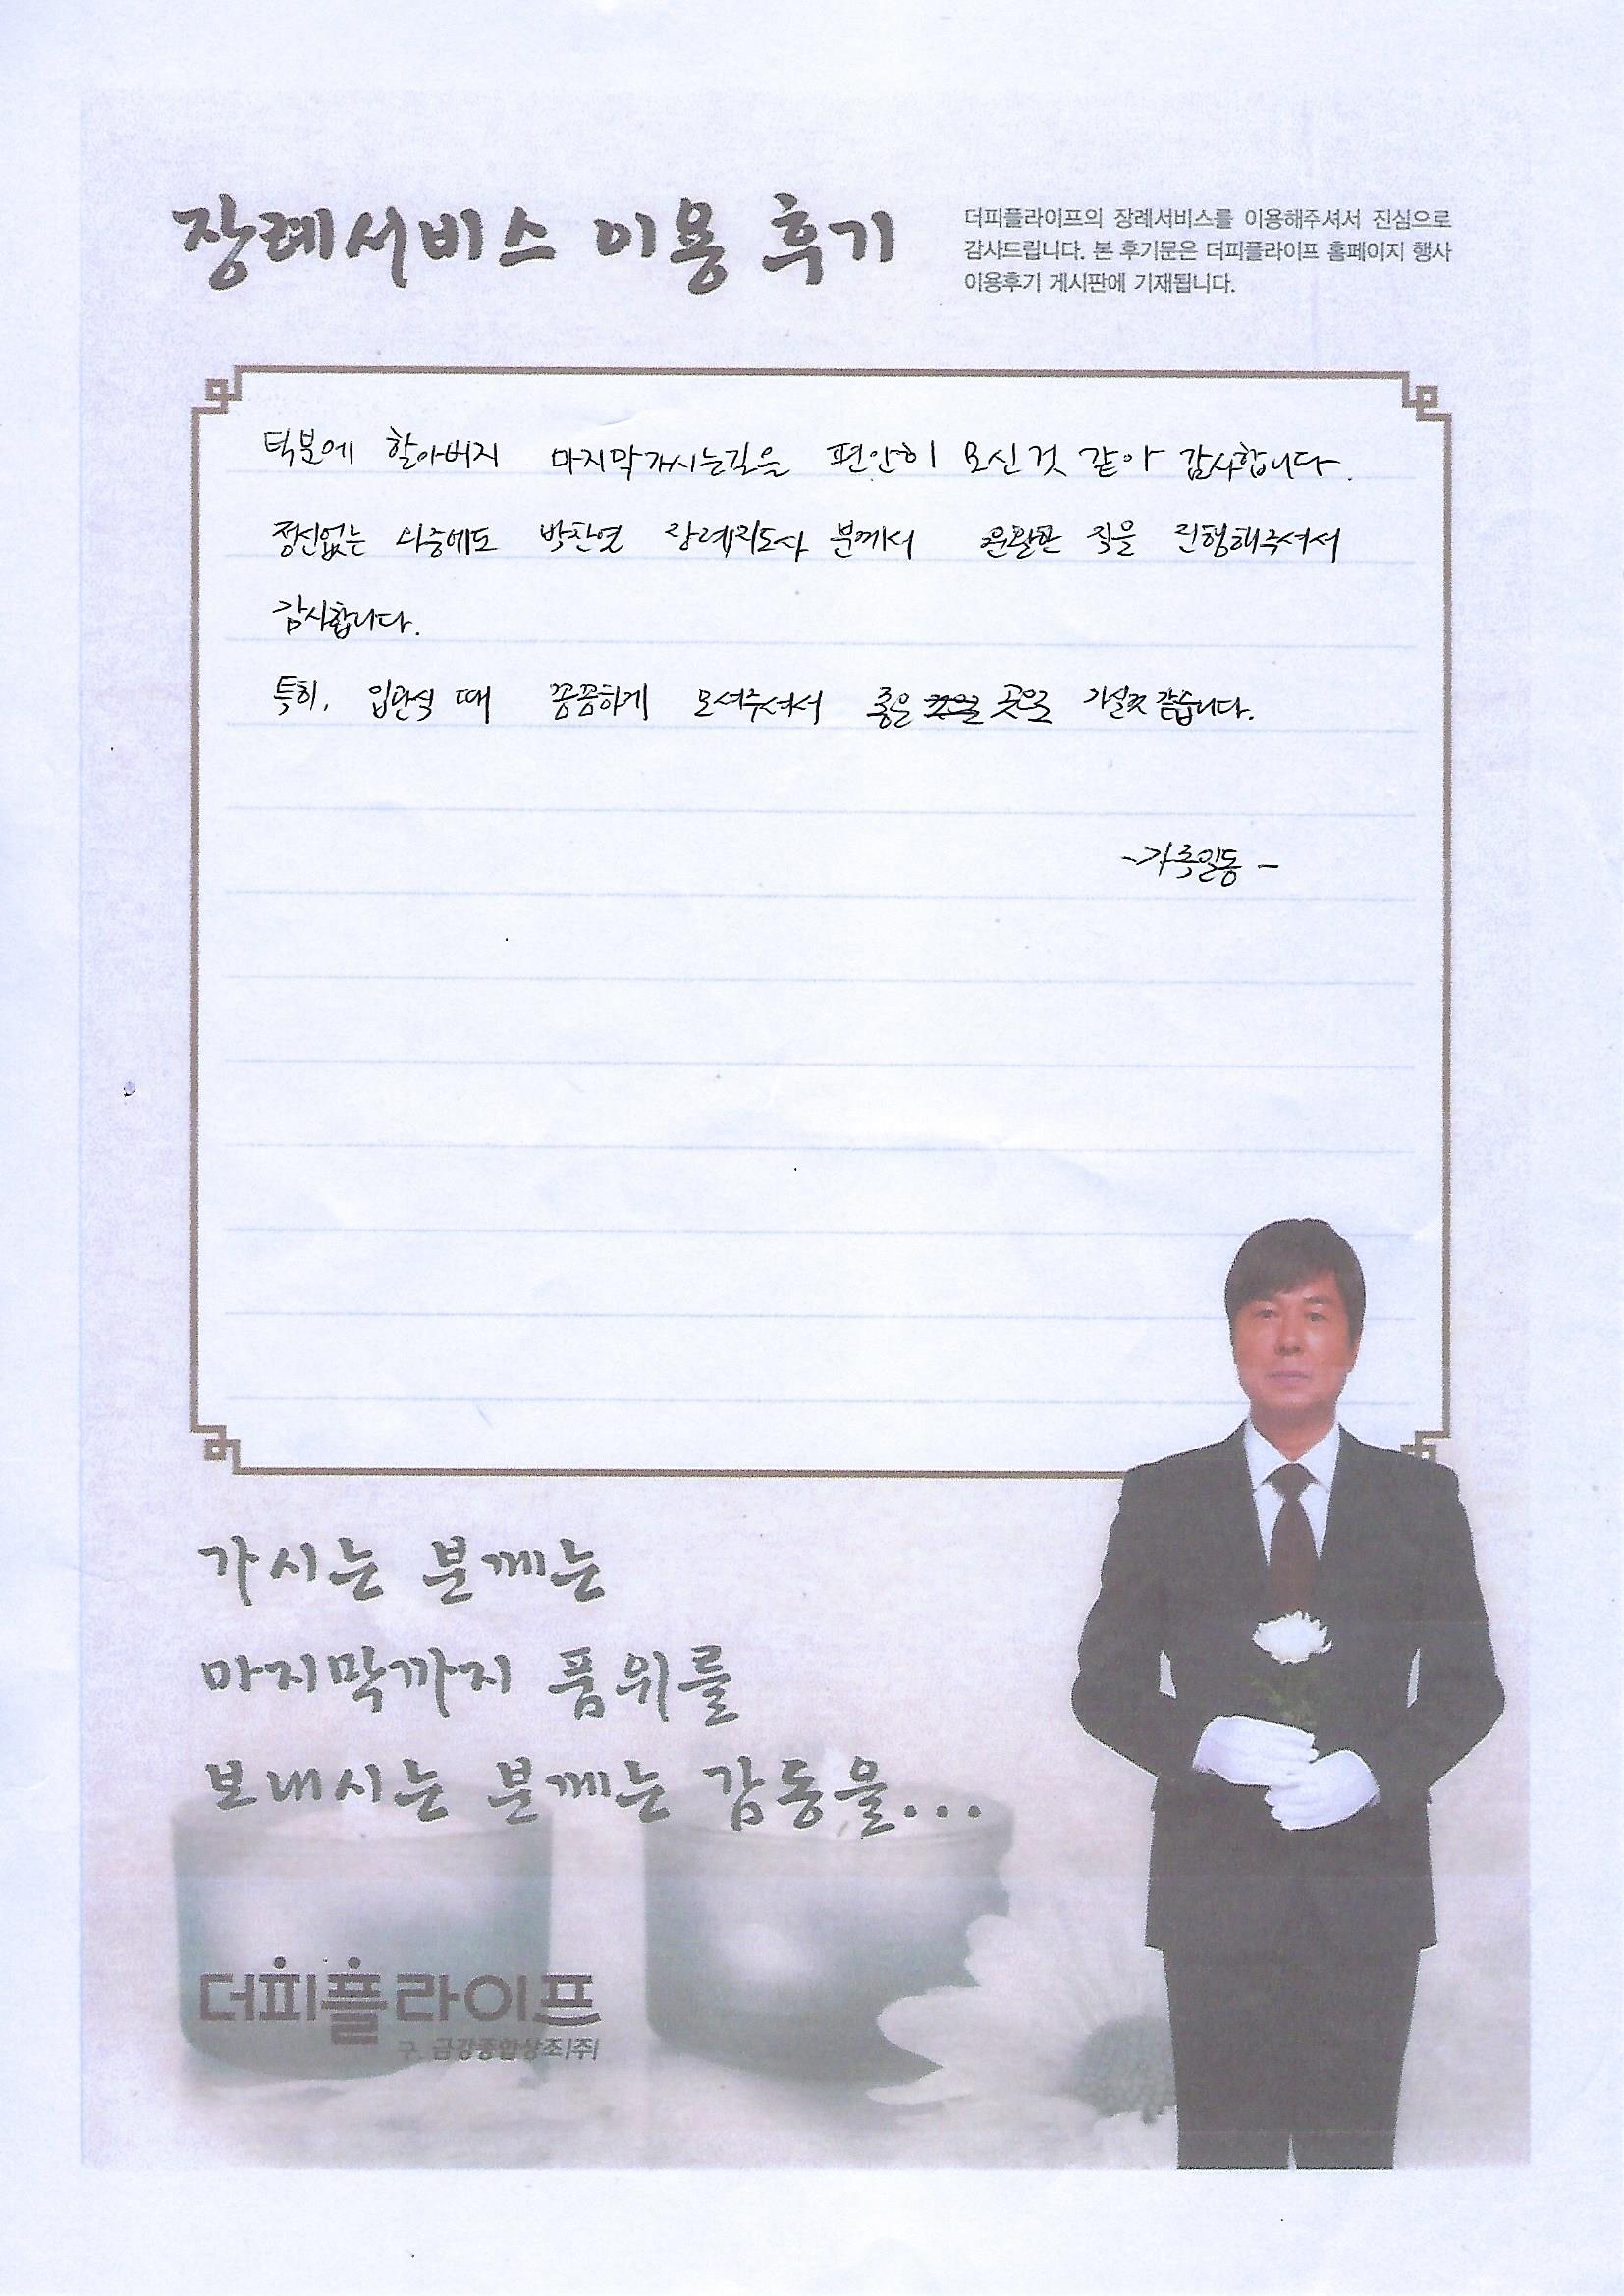 장례서비스 이용 후기
더피플라이프의 장례서비스를 이용해주셔서 진심으로
감사드립니다. 본 후기문은 더피플라이프 홈페이지 행사
이용후기 게시판에 기재됩니다.
턱분에 할아버지 마지막가시는길을 편안히 모신것 같아 감사합니다.
정신없는 와중에도 박찬열 장례지도사 분께서 원활한 식을 진행해주셔서
감사합니다.
특히, 입관식 때 꽁꽁하게 모셔주셔서 좋은 곳으로 가실것 같습니다.
-가족일동-
가시는 분께는
마지막까지 품위를
보내시는 분께는 감동을...
더피플라이프
구. 금강종합상조(주)